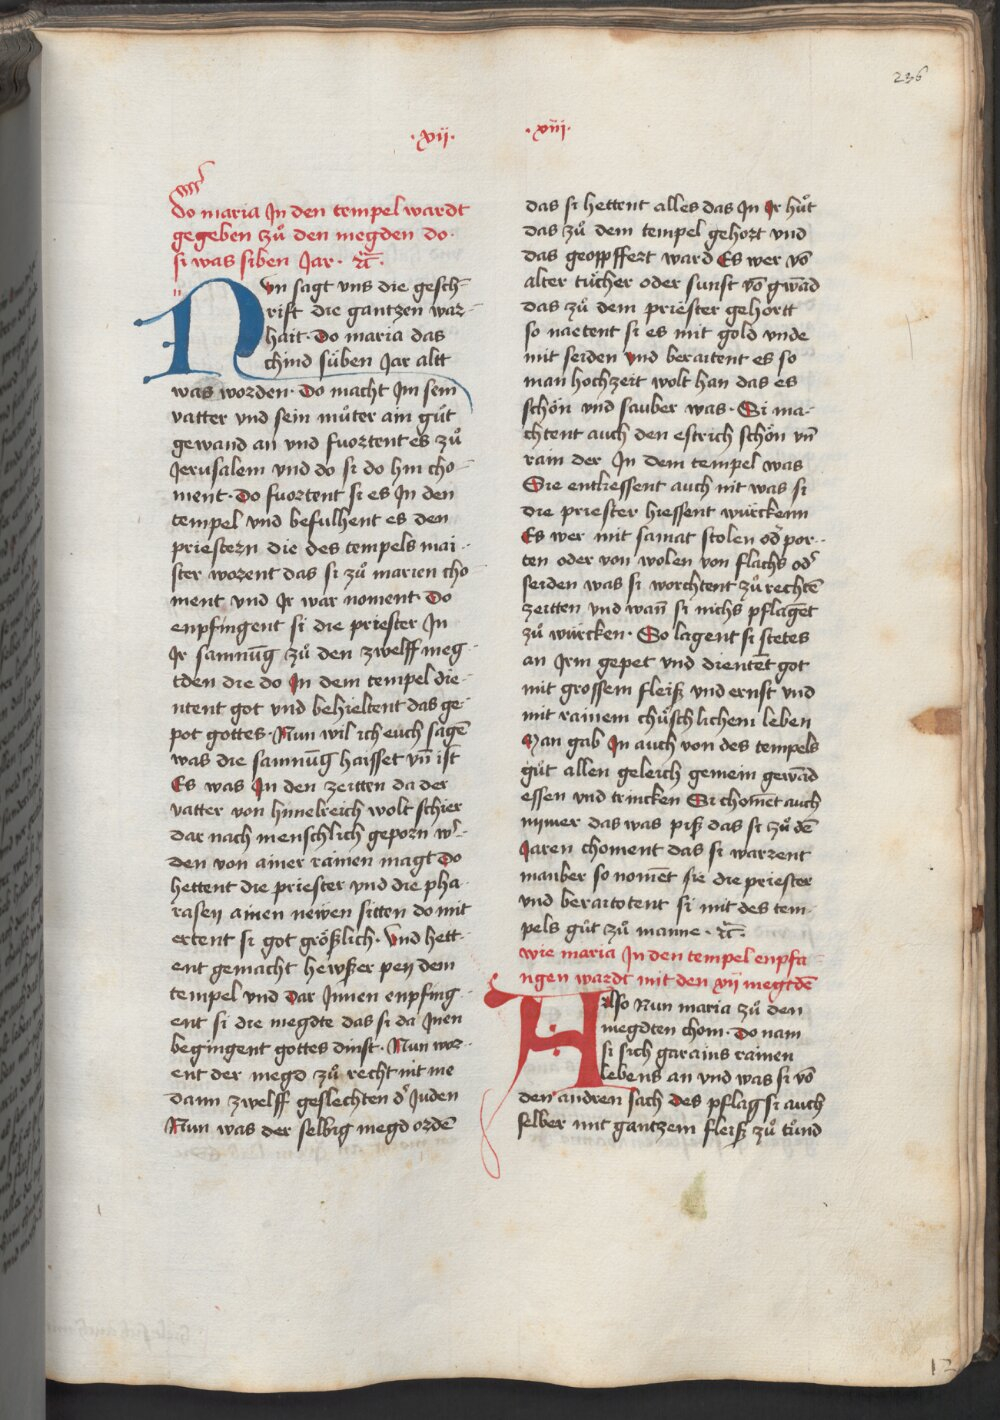 236
·vij·
·xiij·
Do maria In den tempel wardt
gegeben zů den megden do·
si was siben Jar· rc̃·
Nvn sagt vns die gesch-
rift die gantzen war-
hait· Do maria das
chind süben Jar altt
was worden· Do macht Im sein
vatter vnd sein můter ain gůt
gewand an vnd fuortent es zů
Jerusalem vnd do si do hin cho-
ment· Do fuortent si es In den
tempel vnd befulhent es den
priestern die des tempels mai-
ster worent das si zů marien cho
ment vnd Ir war noment· Do
enpfingent si die priester In
Ir samnūg zů den zwelff meg-
tden die do In dem tempel die-
ntent got vnd behieltent das ge-
pot gottes· Nun wil ich euch sagē
was die samnūg haisset vn̄ ist
Es was In den zeitten da der
vatter von himelreich wolt schier
dar nach menschlich geporn w͛-
den von ainer rainen magt Do
hettent die priester vnd die pha-
rasey ainen newen sitten do mit
ertent si got größlich· Vnd hett-
ent gemacht hewser pey dem
tempel vnd Dar Innen enpfing
ent si die megdte das si da Inen
begingent gottes dinst· Nun wor-
ent der megd zů recht nit me
dann zwelff geslechten d͛ Juden
Nun was der selbig megd ordē
das si hettent alles das In Ir hůt
das zů dem tempel gehort vnd
das geopffert ward Es wer vō
alter tücher oder sunst vō gwād
das zů dem priester gehörtt
so naetent si es mit gold vnde
mit seiden vnd beraitent es so
man hochzeit wolt han das es
schön vnd sauber was· Si ma-
chtent auch den estrich schön vn̄
rain der In dem tempel was
Sie entliessent auch nit was si
die priester hiessent würckenn
Es wer mit samat stolen od͛ por-
ten oder von wolen von flachs od͛
seiden was si worchtent zů rechtē
zeitten vnd wan̄ si nichs pflagēt
zů würcken· So lagent si stetes
an Irm gepet vnd dientēt got
mit grossem fleiß vnd ernst vnd
mit rainem chüschlichem leben
Man gab In auch von des tempels
gůt allen geleich gemein gewād
essen vnd trincken Si chomēt auch
nymer das was piß das si zů dē
Jaren choment das si warrent
manber so nomēt sie die priester
vnd beraitotent si mit des tem-
pels gůt zů manne· rc̃·
wie maria In den tempel enpfa-
ngen wardt mit den xij megtdē
Also Nun maria zů den
megdten chom· Do nam
si sich garains rainen
lebens an vnd was si vō
den andren sach Des pflag si auch
selber mit gantzem fleiß zů tůnd
12